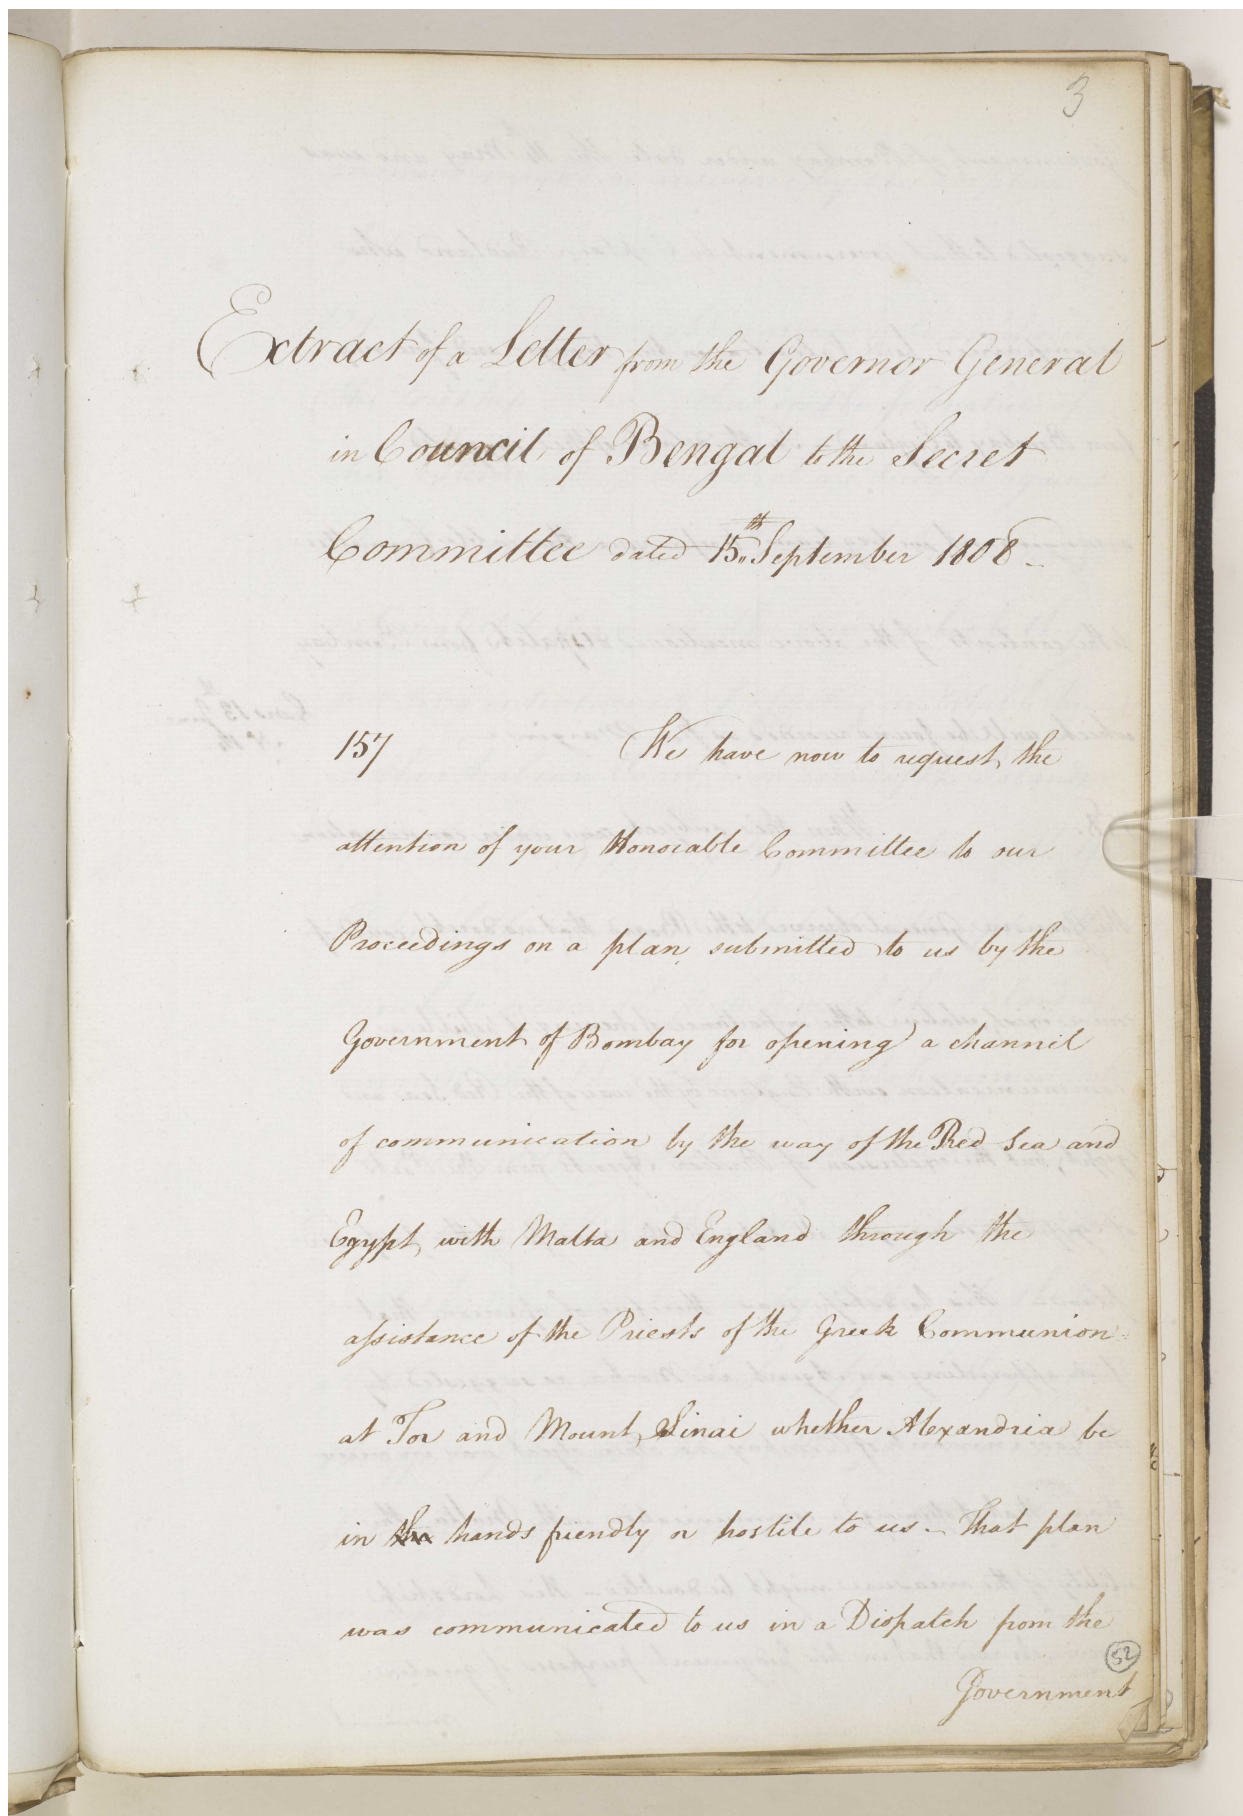 3
Extract of a Letter from the Governor General
in Council of Bengal to the Secret
Committee dated 15th September 1808
157 We have now to request the
attention of your Honorable Committee to our
Proceedings on a plan submitted to us by the
Government of Bombay for opening a channel
of communication by the way of the Red Sea and
Egypt with Malta and England through the
assistance of the Priests of the Greek Communion
at Tor and Mount Sinai whether Alexandria be
in the hands friendly or hostile to us – That plan
was communicated to us in a Dispatch from the
52
Government